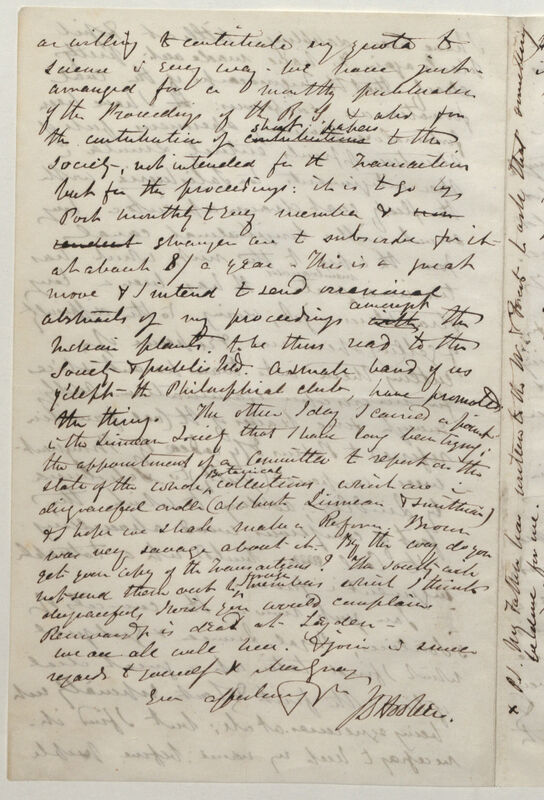 as willing to contribute my quota to
science in every way. We have just
arranged for a monthly publication
of the Proceedings of the R. S. & also for
the contribution of short papers contributions to the
Society, not intended for the Transactions
but for the proceedings: it is to go by
Post monthly to every member & non
resident stranger are to subscribe for it
at about 8/ a year. This is a great
move & I intend to send occasional
abstracts of my proceedings amongst with the
Indian plants, to be thus read to the
Society & published. A small band of us
y'clept the Philosophical club, have promoted
the thing. The other day I carried a point
in the Linnean Society that I have long been trying;
the appointment of a Committee to report on the
state of the whole Botanical collections which are in
disgraceful order (all but Linnean & Smithian)
& I hope we shall make a Reform. Brown
was very savage about it. By the way do you
get your copy of the Transactions? The Society will
not send them out to foreign members which I think
disgraceful, I wish you would complain
Reinwardt is dead at Leyden
We are all well here. & join in sincere
regards to yourself & Mrs Gray
Ever affectionately yrs
JD Hooker.
x P.S. My Father has written to the W. & Forests to ask that something
be done for me.